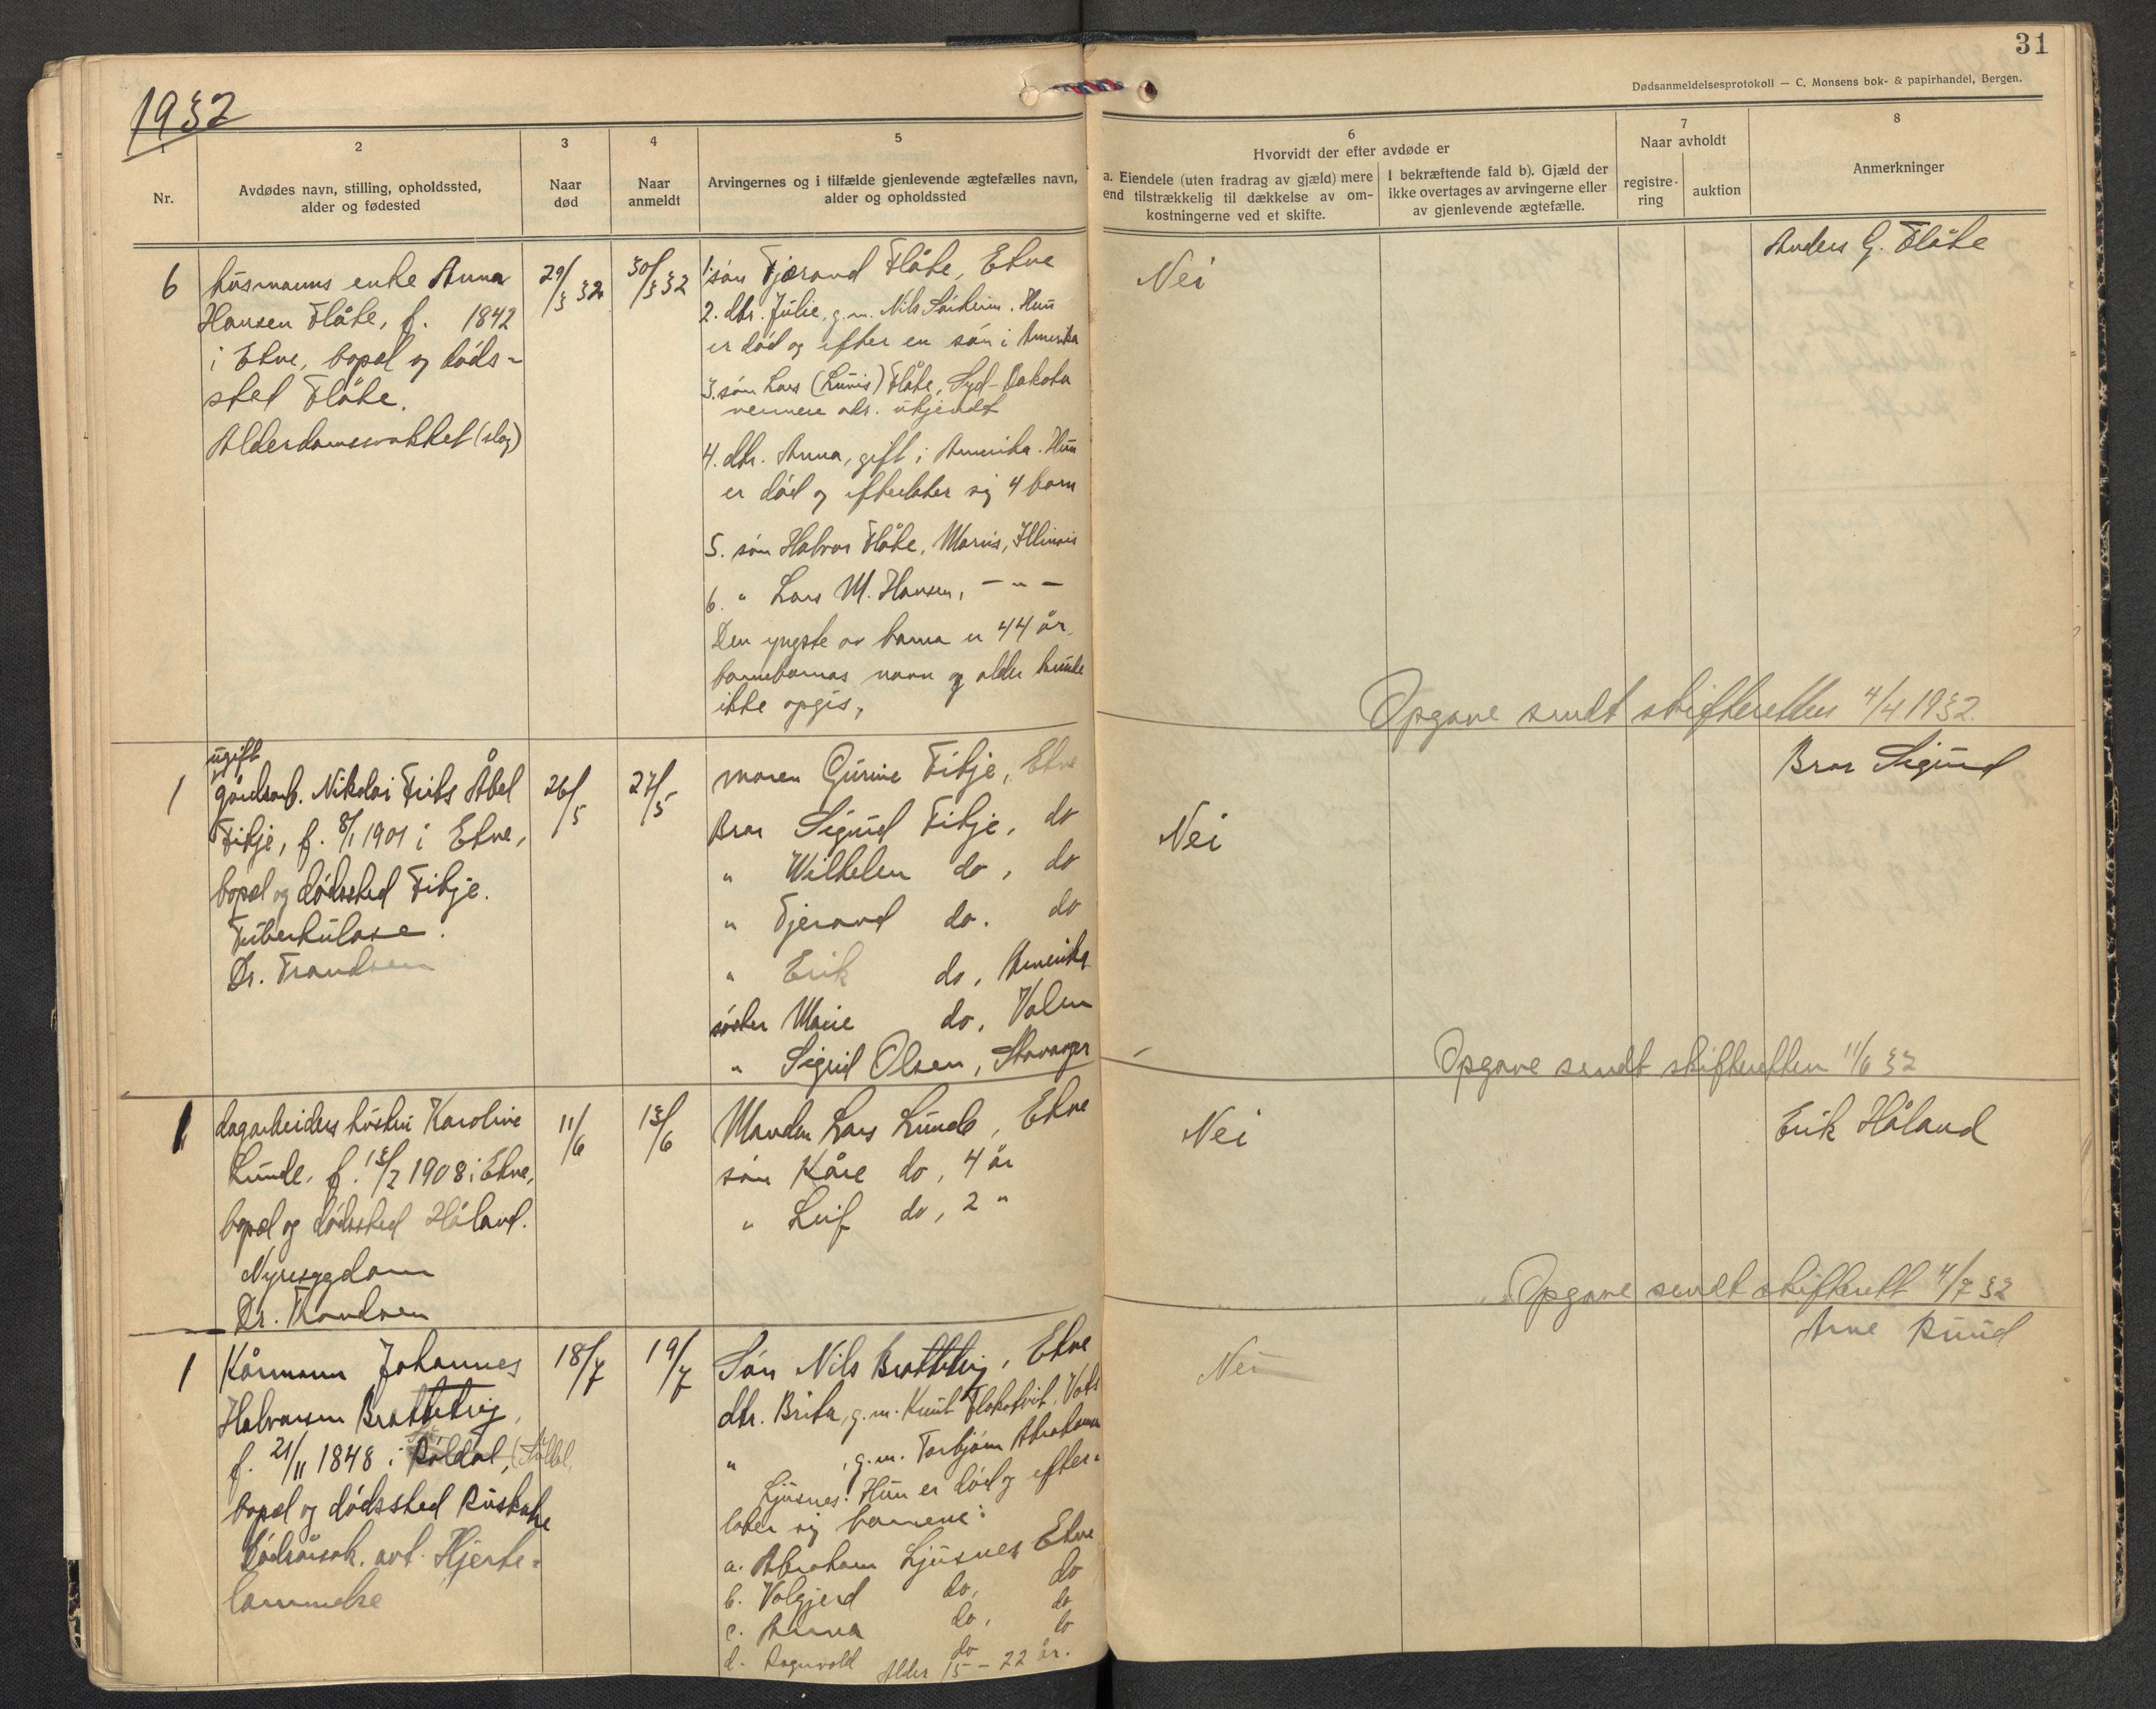 31
Dødsanmeldelsesprotokoll — C. Monsens bok- & papirhandel, Bergen.
1932
1
Nr.
2
Avdødes navn, stilling, opholdssted,
alder og fødested
3
Naar
død
4
Naar
anmeldt
5
Arvingernes og i tilfælde gjenlevende ægtefælles navn,
alder og opholdssted
6
Hvorvidt der efter avdøde er
a. Eiendele (uten fradrag av gjæld) mere
end tilstrækkelig til dækkelse av om-
kostningerne ved et skifte.
I bekræftende fald b). Gjæld der
ikke overtages av arvingerne eller
av gjenlevende ægtefælle.
7
Naar avholdt
registre-
ring
auktion
8
Anmerkninger
6
húsmanns enke Anna
Hansen Flåte, f. 1842
i Etne, bopel og døds-
sted Flåte.
Alderdomssvakket (slag)
29/3 32
30/3 32
1. søn Tjærand Flåte, Etne
2. dtr. Júlie, g.m. Nils Sørheim. Hun
er død og efter en søn i Amerika
3. søn Lars (Lúuis) Flåte, Syd-Dakota
nermere adr. úkjendt
4. dtr. Anna, gift i Amerika. Hún
er død og efterlater sig 4 barn
5. søn Halvor Flåte, Morris, Illinois
6. " Lars M. Hansen, — " —
Den yngste av barna er 44 år.
barnebarnas navn og alder kúnde
ikke opgis,
Nei
Anders G. Flåte
Opgave sendt skifteretten 4/4 1932.
1
ugift
gårdsarb. Nikolai Frits Åbel
Fitje, f. 8/1 1901 i Etne,
bopæl og dødssted Fitje.
Túberkúlose.
Dr. Frandsen
26/5
27/5
moren Gúrine Fitje, Etne
Bror Sigúrd Fitje, do
" Wilhelm do, do
" Tjerand do. do
" Erik do, Amerika
søster Marie do, Valen
" Sigrid Olsen, Stavanger
Nei
Bror Sigúrd
Opgave sendt skifteretten 11/6 32
1
dagarbeiders hústrú Karoline
Lúnde, f. 13/2 1908 i Etne,
bopæl og dødssted Håland.
Nyresygdom
Dr. Frandsen
11/6
13/6
Manden Lars Lúnde, Etne
søn Kåre do, 4 år
" Leif do, 2 "
Nei
Erik Håland
Opgave sendt skifterett 4/7 32
1
Kårmann Johannes
Halvorsen Brattetveig,
f. 21/11 1848 i Røldal,
bopæl og dødssted Rúskake
Dødsårsak. ant. Hjerte-
lammelse
18/7
19/7
Søn Nils Brattetveig, Etne
dtr. Brita, g.m. Knút Flokatveit, Vats
" , g.m. Torbjørn Abrahamsen
Ljúsnes. Hún er død og efter-
later sig barnene:
a. Abraham Ljúsnes Etne
b. Valgjerd do, do
c. Anna do, do
d. Ragnvald do do
Alder 15 - 22 år.
Nei
Arne Rúúd